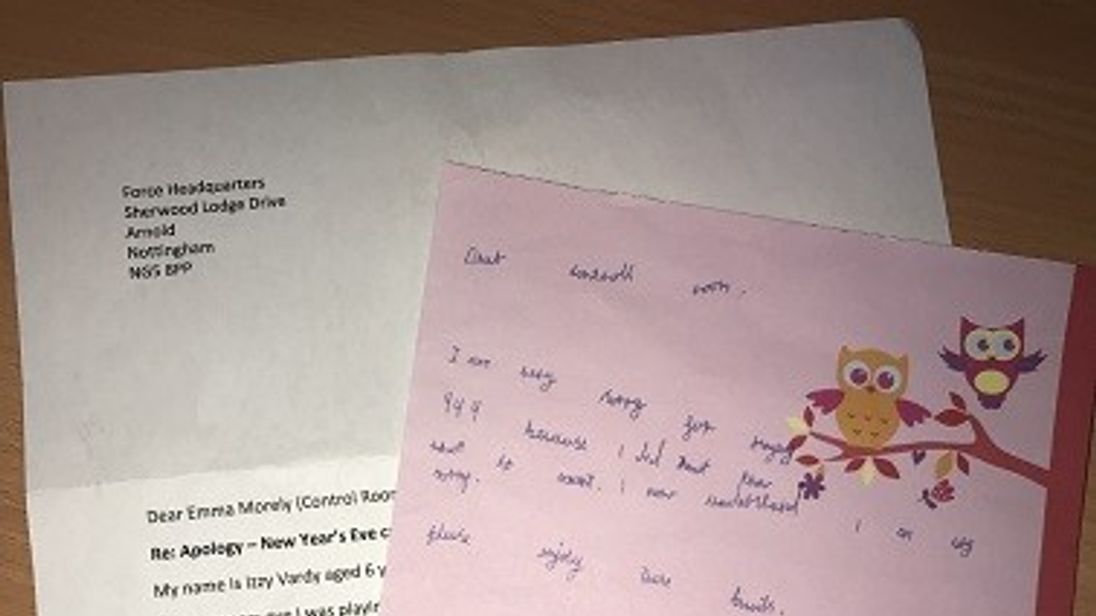 Force Headquarters
Sherwood Lodge Drive
Arnold
Nottingham
NG5 8PP
Dear Emma Morely (Control Roo
Re: Apology – New Year's Eve c
My name is Izzy Vardy aged 6 y
I was playin
Dear control room,
I am very sorry for
999 because I did not know
what it meant. I now understand I am
sorry.
please enjoy these